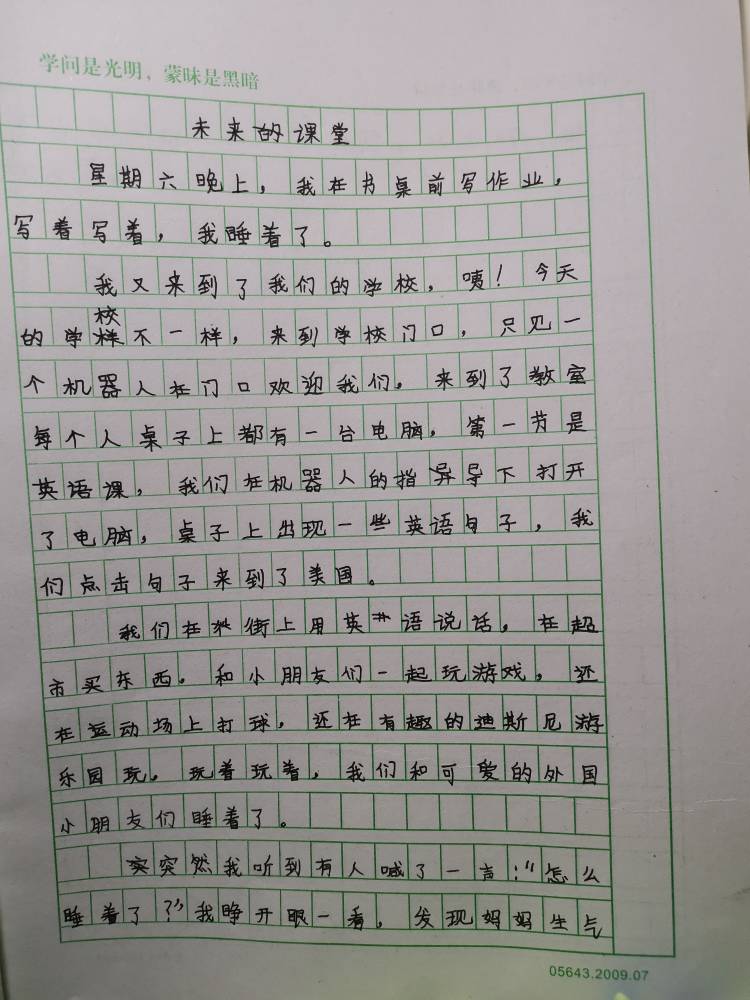 学问是光明，蒙昧是黑暗
未来的课堂
星期六晚上，我在书桌前写作业，
写着写着，我睡着了。
我又来到了我们的学校，咦！今天
的学校不一样，来到学校门口，只见一
个机器人在门口欢迎我们。来到了教室
每个人桌子上都有一台电脑，第一节是
英语课，我们在机器人的指导下打开
了电脑，桌子上出现一些英语句子，我
们点击句子来到了美国。
我们在街上用英语说话。在超
市买东西。和小朋友们一起玩游戏。还
在运动场上打球，还在有趣的迪斯尼游
乐园玩。玩着玩着，我们和可爱的外国
小朋友们睡着了。
突然我听到有人喊了一声："怎么
睡着了？"我睁开眼一看，发现妈妈生气
05643.2009.07